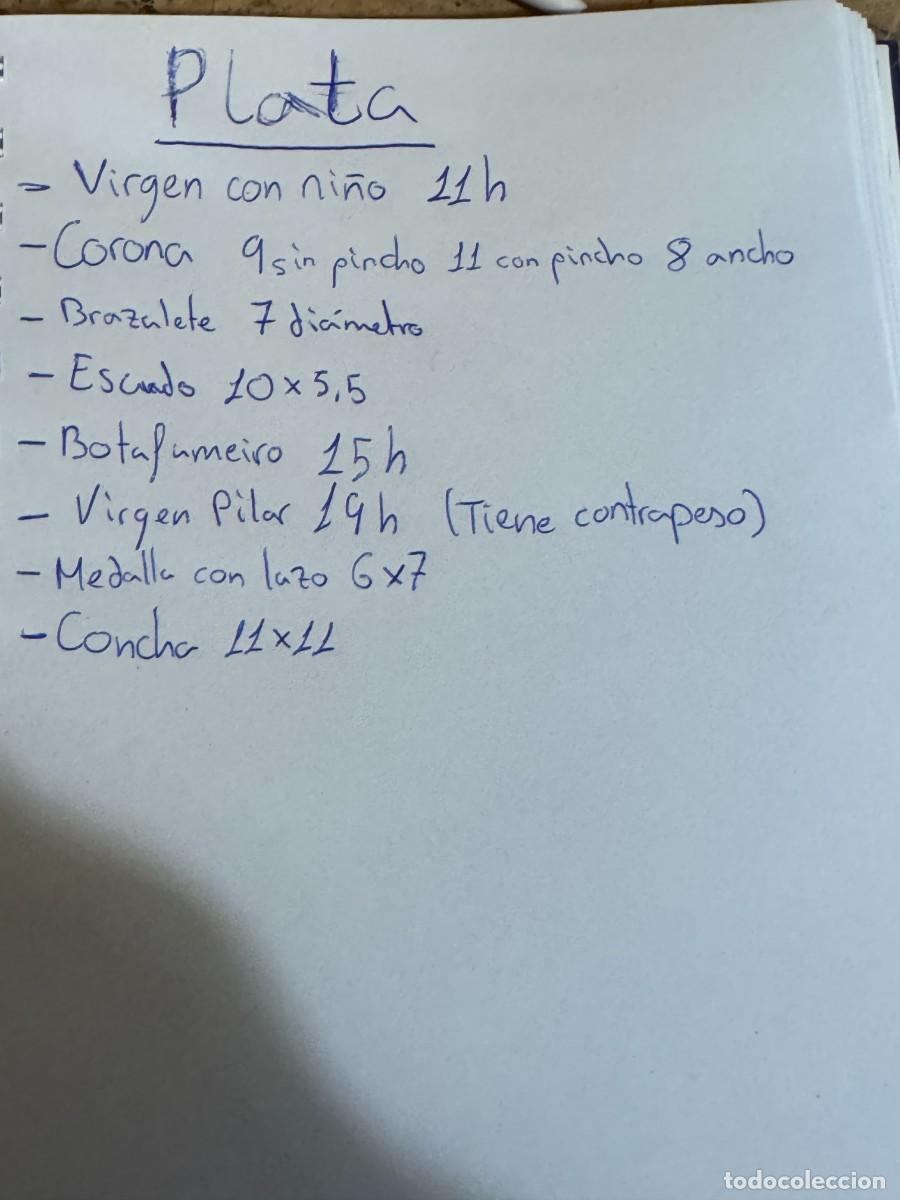 Plata
- Virgen con niño 11h
- Corona 9 sin pincho 11 con pincho 8 ancho
- Brazalete 7 diámetro
- Escudo 10x5,5
- Botafumeiro 15h
- Virgen Pilar 19h (Tiene contrapeso)
- Medalla con lazo 6x7
- Concha 11x11
todocoleccion